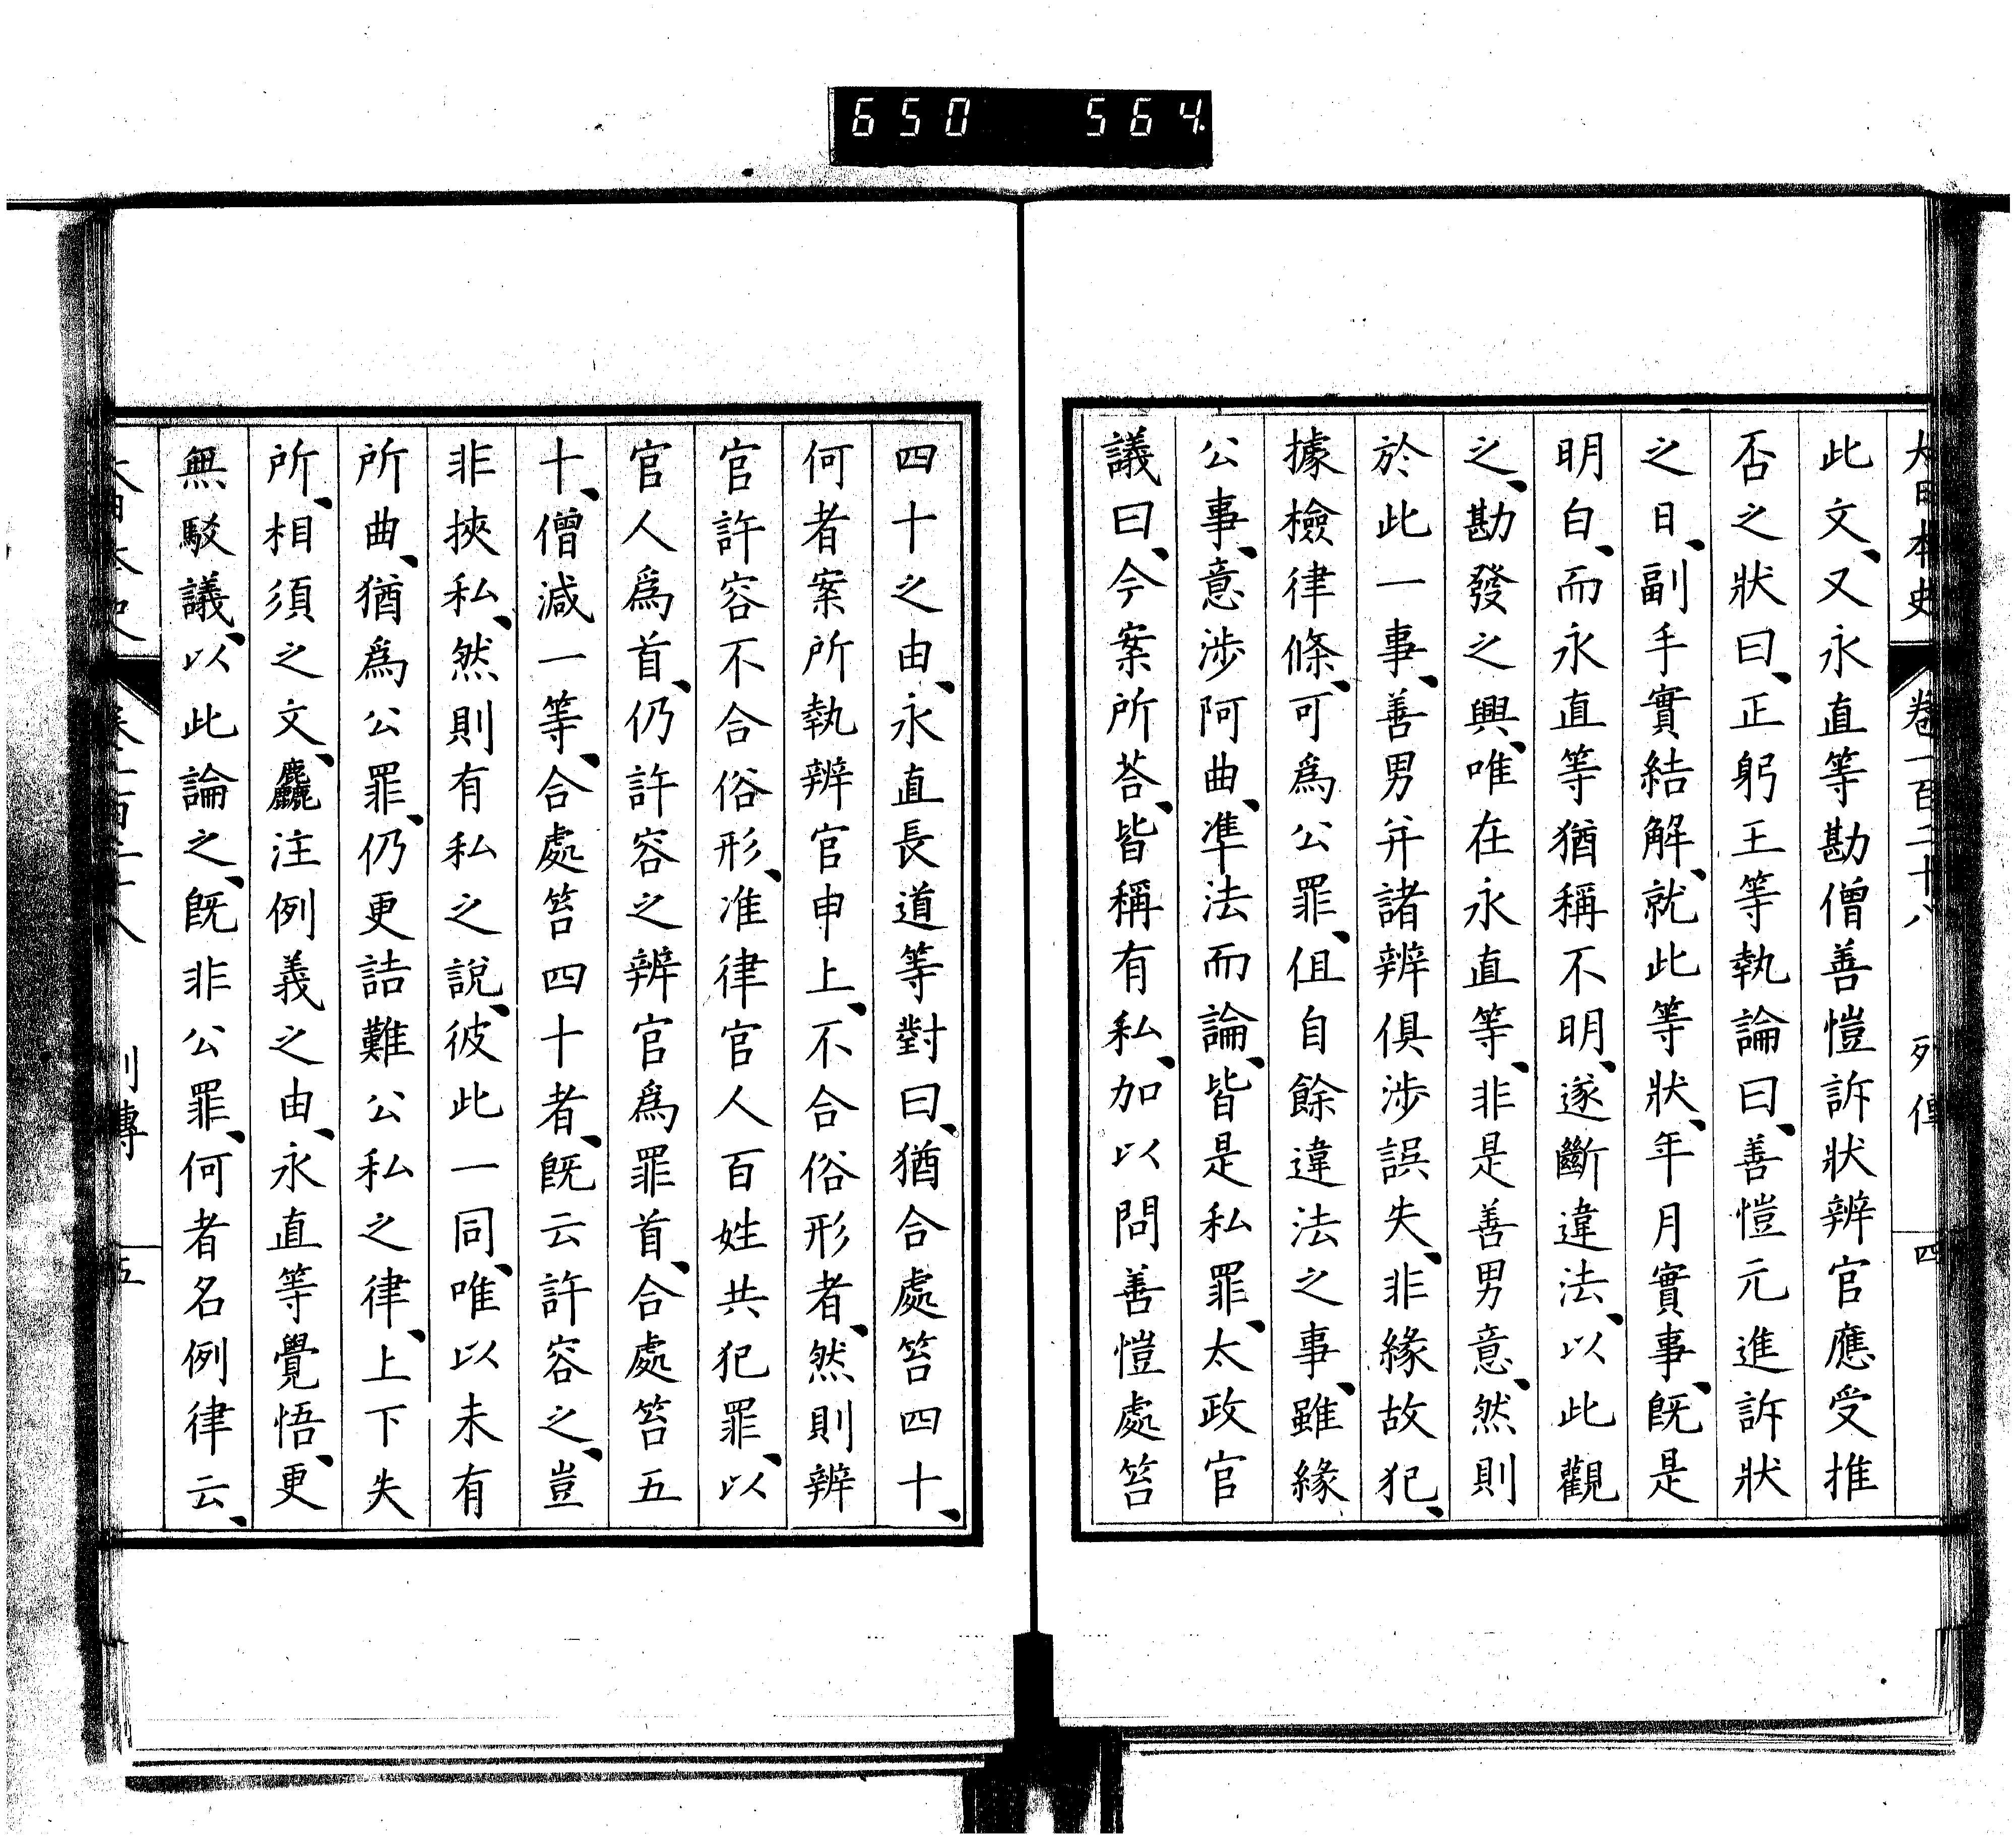 650 564
大日本史 卷一百二十八 列傳 四
此文、又永直等勘僧善愷訴狀辨官應受推
否之狀曰、正躬王等執論曰、善愷元進訴狀
之日、副手實結解、就此等狀、年月實事、既是
明白、而永直等猶稱不明、遂斷違法、以此觀
之、勘發之興、唯在永直等、非是善男意、然則
於此一事、善男幷諸辨俱涉誤失、非緣故犯、
據檢律條、可爲公罪、但自餘違法之事、雖緣
公事、意涉阿曲、準法而論、皆是私罪、太政官
議曰、今案所荅、皆稱有私、加以問善愷處笞
四十之由、永直長道等對曰、猶合處笞四十、
何者案所執辨官申上、不合俗形者、然則辨
官許容不合俗形、准律官人百姓共犯罪、以
官人爲首、仍許容之辨官爲罪首、合處笞五
十、僧減一等、合處笞四十者、既云許容之、豈
非挾私、然則有私之說、彼此一同、唯以未有
所曲、猶爲公罪、仍更詰難公私之律、上下失
所、相須之文、麤注例義之由、永直等覺悟、更
無駁議、以此論之、既非公罪、何者名例律云、
大日本史 卷一百二十八 列傳 五